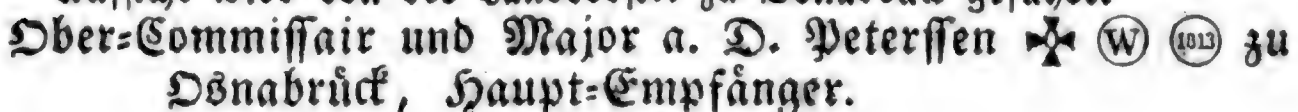 Ober-Commissair und Major a. D. Peterssen ✠ Ⓦ (1813) zu
Osnabrück, Haupt-Empfänger.